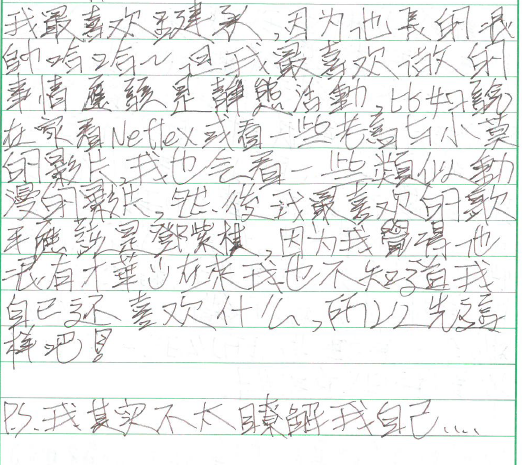 我最喜欢王建承,因为他長的很
帥哈哈~ 且我最喜欢做的
事情應該是靜態活動,比如說
在家看Neffex或看一些老高与小茉
的影片,我也会看一些類似動
漫的影片,然後我最喜欢的歌
手應該是鄧紫棋,因为我覺得他
很有才華 現在來我也不知道我
自己还喜欢什么,所以先這
樣吧
P.S.我其实不太瞭解我自己....